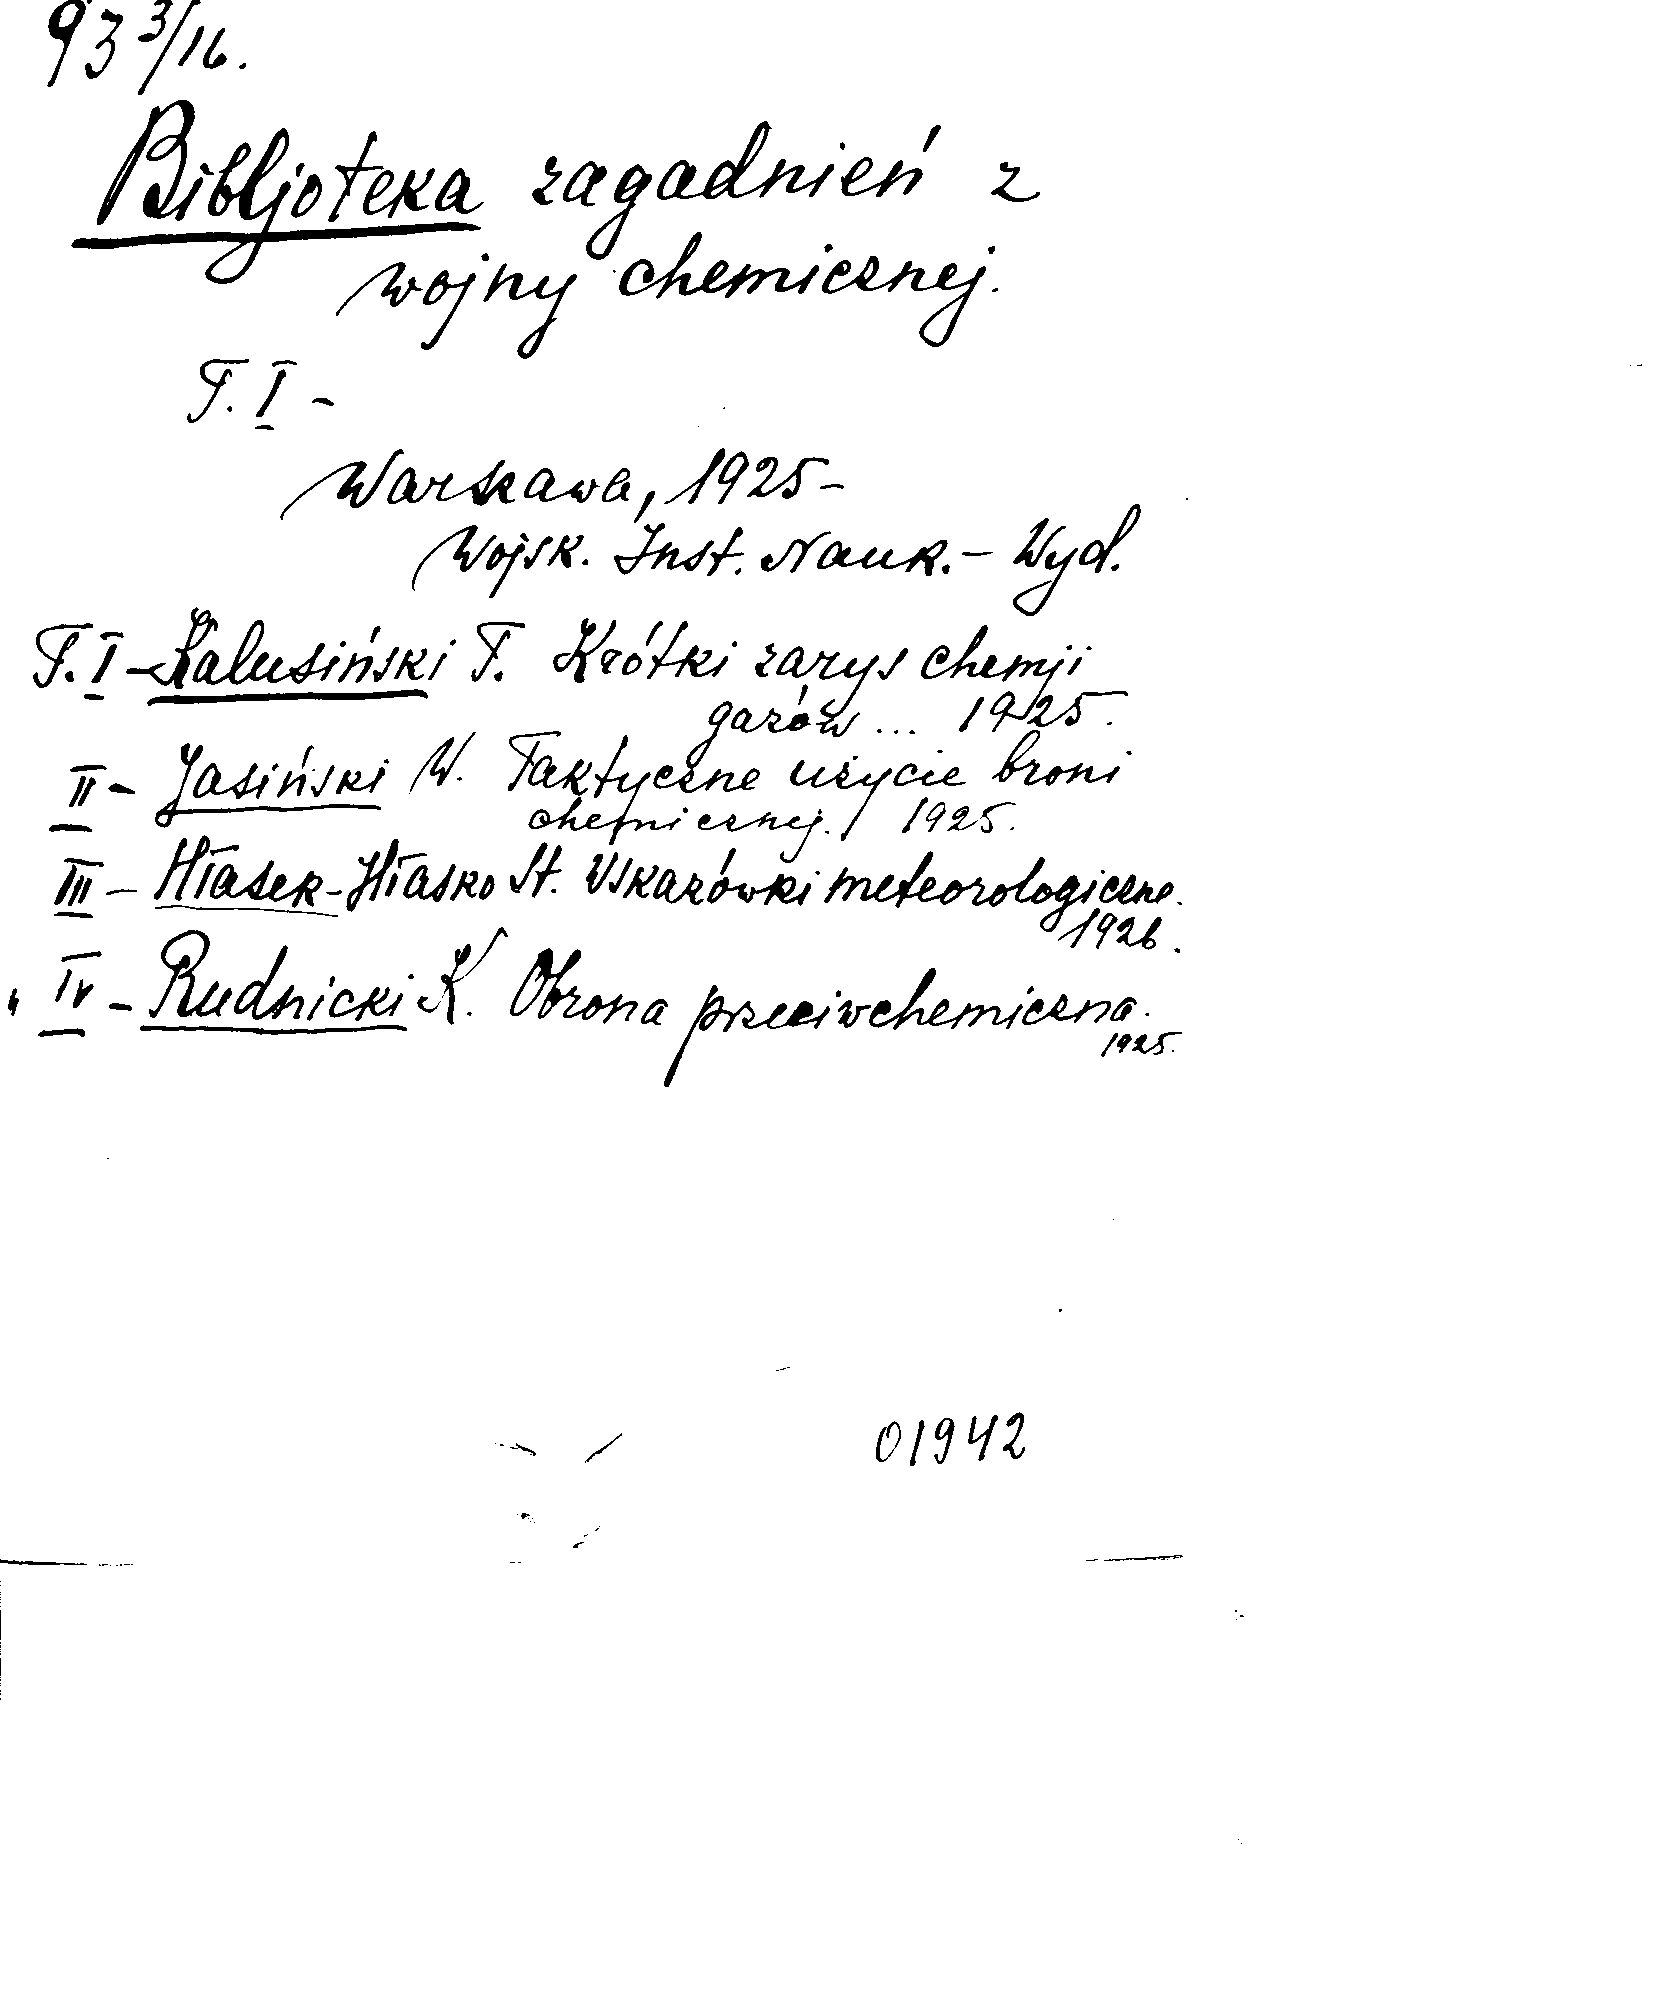 93 3/16.
Bibljoteka zagadnień z
wojny chemicznej.
T. I -
Warszawa, 1925-
Wojsk. Inst. Nauk.- Wyd.
T. I - Kalusiński T. Krótki zarys chemji
gazów... 1925.
II - Jasiński W. Taktyczne użycie broni
chemicznej. 1925.
III - Hłasek-Hłasko St. Wskazówki meteorologiczne.
1926.
" IV - Rudnicki K. Obrona przeciwchemiczna.
1925.
01942